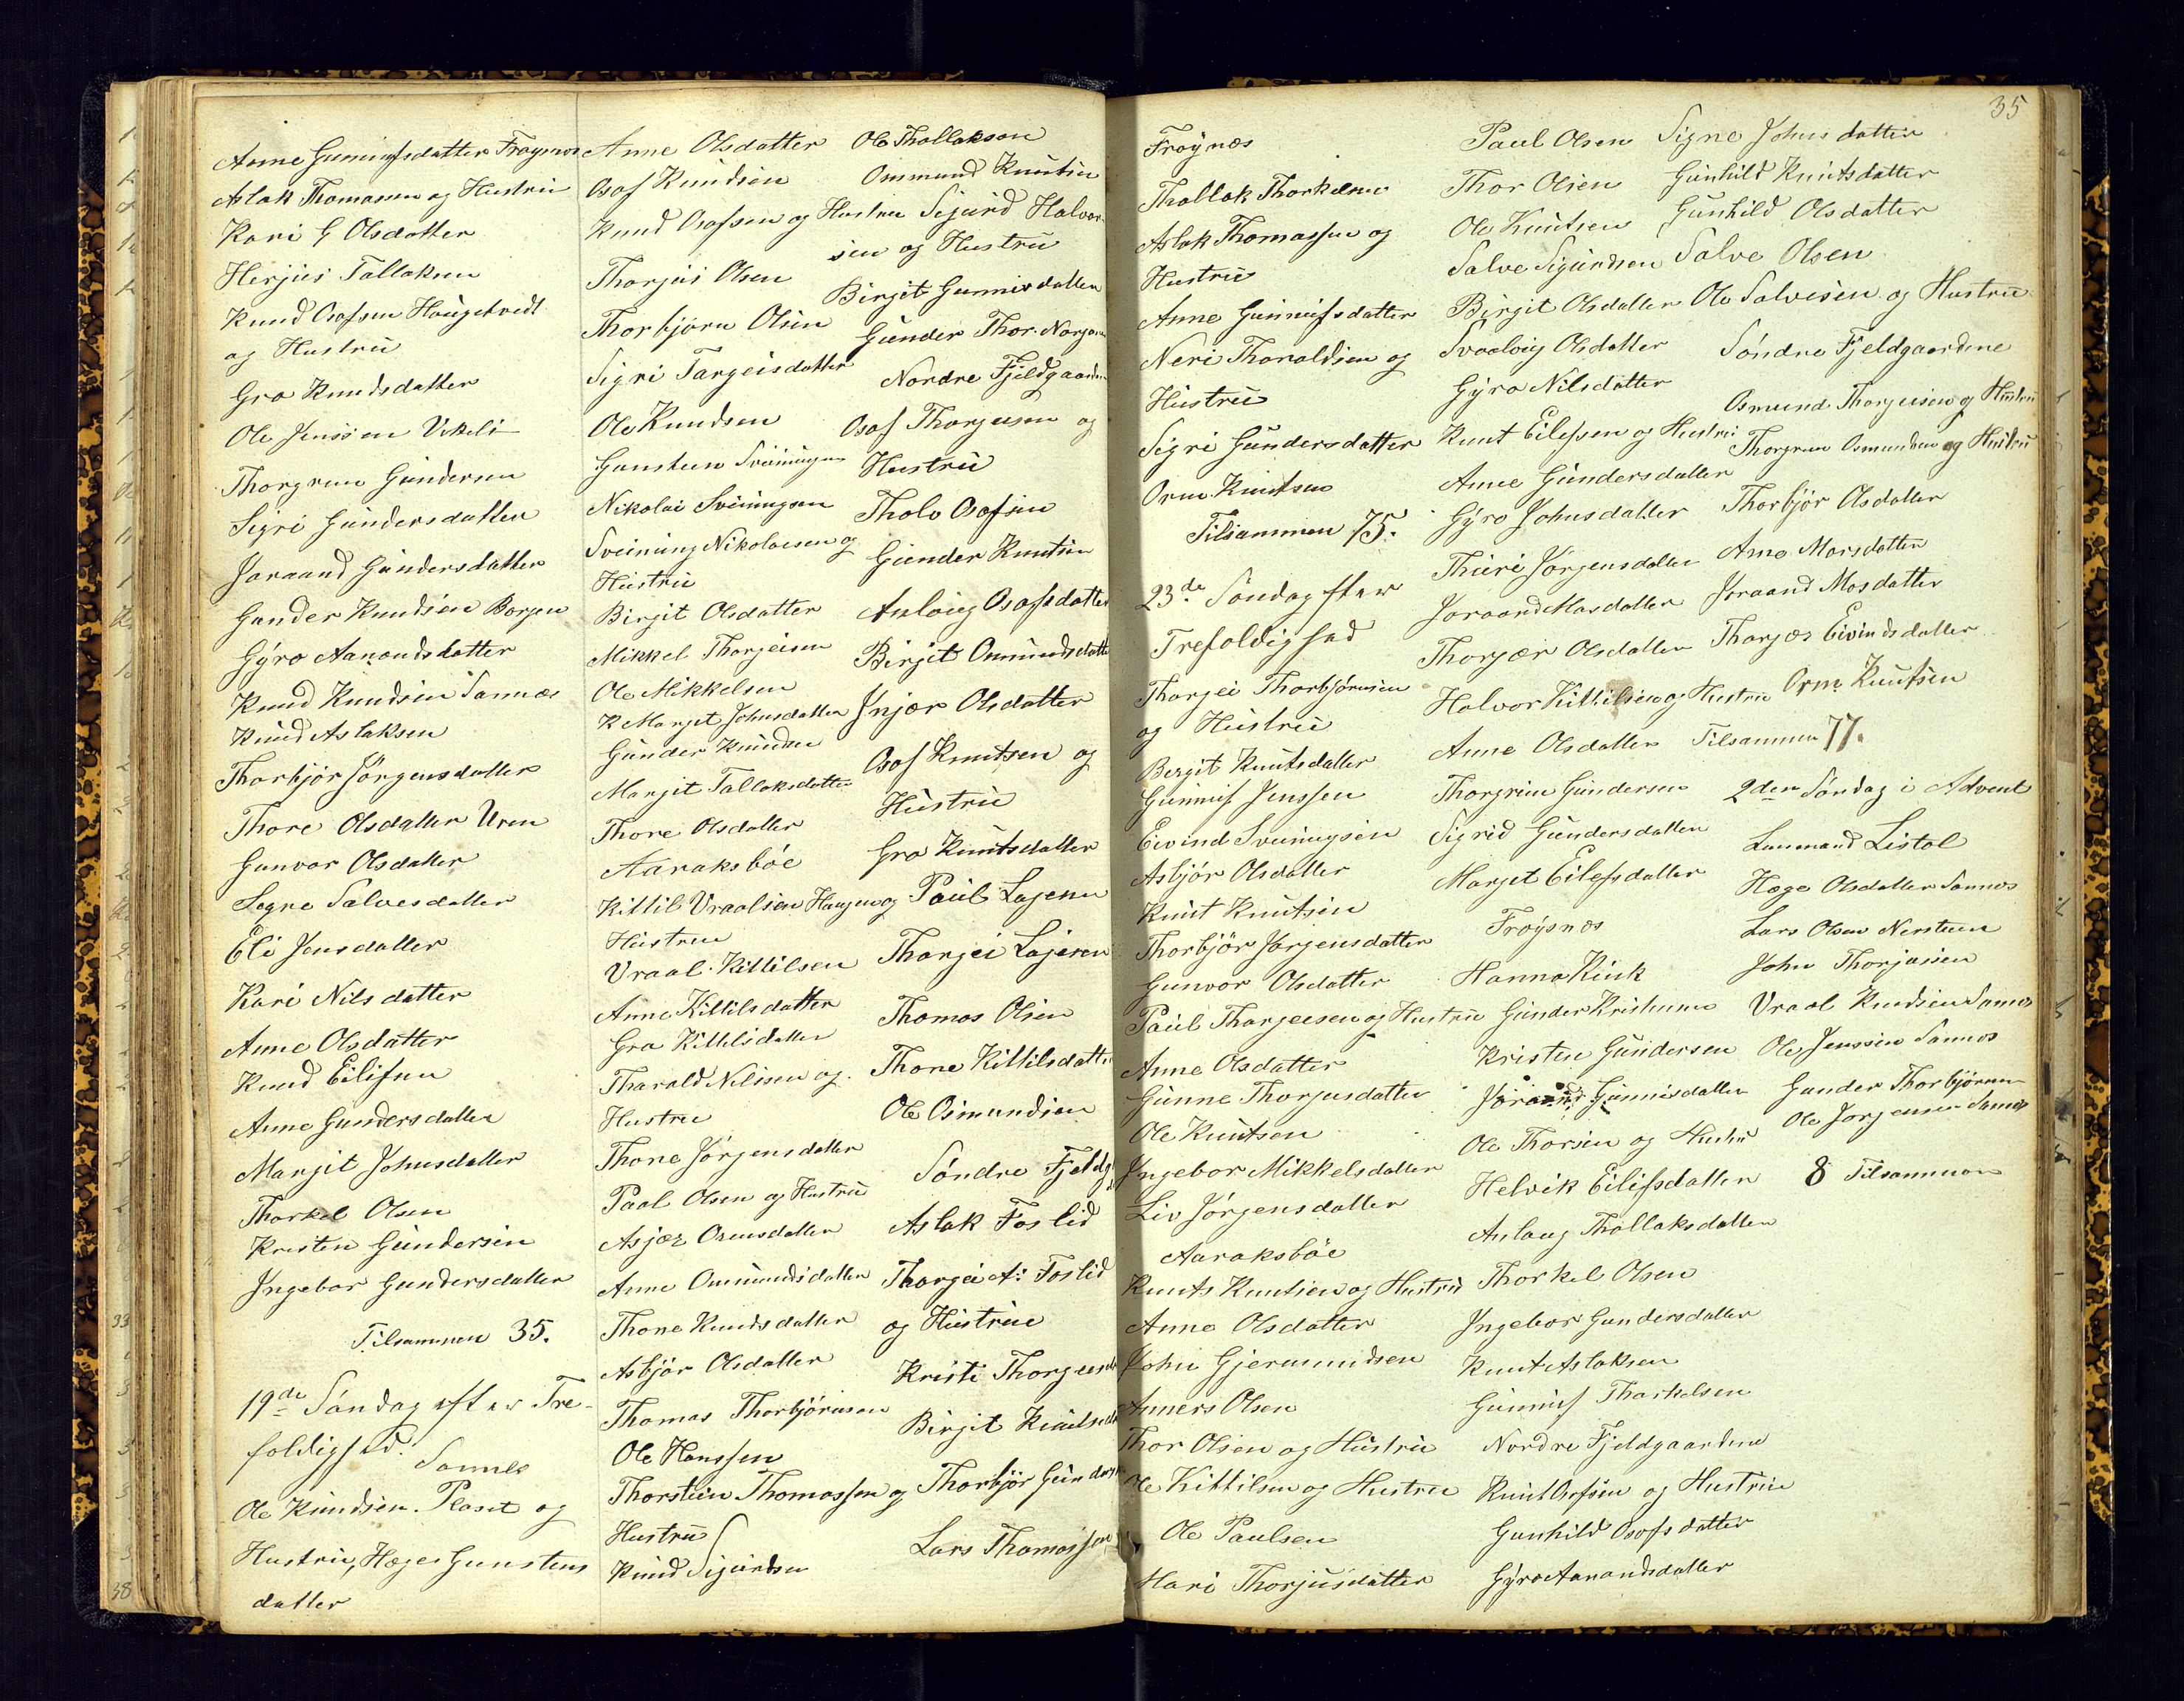 Anne Gunnufsdatter Frøynæs
Aslak Thomassen og Hustru
Kari G Olsdatter
Herjus Tallaksen
Knud Osofsen Haugetvedt
og Hustru
Gro Knudsdatter
Ole Jenssen Vikeli
Thorgrim Gundersen
Sigri Gundersdatter
Joraand Gundersdatter
Gunder Knudsen Borgen
Gyro Aanondsdatter
Knud Knudsen Sannæs
Knud Aslaksen
Thorbjør Jørgensdatter
Thore Olsdatter Uren
Gunvor Olsdatter
Segne Salvesdatter
Eli Jensdatter
Kari Nilsdatter
Anne Olsdatter
Knud Eilifsen
Anne Gundersdatter
Margit Johnsdatter
Thorkel Olsen
Kristen Gundersen
Ingebor Gundersdatter
Tilsammen 35.
19de Søndag efter Tre-
foldighed.
Sannes
Ole Knudsen Plasset og
Hustru, Hæge Gunstens
datter
Anne Olsdatter
Osof Knudsen
Knud Osofsen og Hustru
Thorjus Olsen
Thorbjørn Olsen
Sigri Targeisdatter
Ole Knudsen
Gunsten Sveinungsen
Nikolai Sveinungsen
Sveinung Nikolaisen og
Hustru
Birgit Olsdatter
Mikkel Thorgeisen
Ole Mikkelsen
K Margit Johnsdatter
Gunder Knudsen
Margit Tallaksdatter
Thore Olsdatter
Aaraksbøe
Kittil Vraalsen Haugen og
Hustru
Vraal Kittilsen
Anne Kittilsdatter
Gro Kittilsdatter
Tharald Nilssen og
Hustru
Thone Jørgensdatter
Paal Olsen og Hustru
Asjær Ormsdatter
Anne Ommundsdatter
Thone Knudsdatter
Asbjør Olsdatter
Thomas Thorbjørnsen
Ole Hanssen
Thorstein Thomassen og
Hustru
Knud Sigurdsen
Ole Thollakson
Ommund Knutsen
Sigurd Halvor-
sen og Hustru
Birgit Gunnisdatter
Gunder Thor. Norgaa
Nordre Fjeldgaarden
Osof Thorgeisen og
Hustru
Tholv Osofsen
Gunder Knutsen
Anlaug Osofsdatter
Birgit Omundsdatte
Injær Olsdatter
Osof Knutsen og
Hustru
Gro Knutsdatter
Paul Lagesen
Thorgei Lajeren
Thomas Olsen
Thone Kittilsdatte
Ole Osmundsen
Søndre Fjeldg
Aslak Foslid
Thorgei A: Foslid
og Hustru
Kristi Thorgeisd
Birgit Knutsd
Thorbjør Gunders
Lars Thomassen
35
Frøynæs
Thollak Thorkelsen
Aslak Thomassen og
Hustru
Anne Gunnufsdatter
Neri Tharaldsen og
Hustru
Sigri Gundersdatter
Orm Knutsen
Tilsammen 75.
23de Søndag efter
Trefoldighed
Thorgei Thorbjørnsen
og Hustru
Bergit Knutsdatter
Gunnuf Jenssen
Eivind Sveinugsen
Asbjør Olsdatter
Knut Knutsen
Thorbjør Jørgensdatter
Gunvor Olsdatter
Paul Thorgeesen og Hustru
Anne Olsdatter
Gunne Thorjusdatter
Ole Knutsen
Ingebor Mikkelsdatter
Liv Jørgensdatter
Aaraksbøe
Knuts Knutsen og Hustru
Anne Olsdatter
John Gjermundsen
Anners Olsen
Thor Olsen og Hustru
Ole Kittilsen og Hustru
Ole Paulsen
Hari Thorjusdatter
Paul Olsen
Thor Olsen
Ole Knutsen
Salve Sigurdsen
Birgit Olsdatter
Svaalvig Olsdatter
Gyro Nilsdatter
Knut Eilefsen og Hustru
Anne Gundersdatter
Gyro Johnsdatter
Thuri Jørgensdatter
Joraand Masdatter
Thorgær Olsdatter
Halvor Kittilsen og Hustru
Anne Olsdatter
Thorgrim Gundersen
Sigrid Gundersdatter
Marget Eilefsdatter
Frøysnæs
Hanna Kink
Gunder Kristensen
Kristen Gundersen
Joraand Gunnisdatter
Ole Thorsen og Hustru
Helvik Eilifsdatter
Anlaug Thollaksdatter
Thorkel Olsen
Ingebor Gundersdatter
Knut Aslaksen
Gunnuf Tharkelsen
Nordre Fjeldgaardene
Knut Osofsen og Hustru
Gunhild Osofsdatter
Gyro Aanondsdatter
Signe Johnsdatter
Gunhild Knutsdatter
Gunhild Olsdatter
Salve Olsen
Ole Salvesen og Hustru
Søndre Fjeldgaardene
Osmund Thorgeisen og Hustru
Thorgrim Osmundsen og Hustru
Thorbjør Olsdatter
Anne Marsdatter
Joraand Mosdatter
Thorgær Eivindsdatter
Orm Knutsen
Tilsammen 77.
2den Søndag i Advent
Lensmand Listøl
Hæge Olsdatter Sannæs
Lars Olsen Nersteen
John Thorjussen
Vraal Knudsen Sannæs
Ole Jenssen Sannæs
Gunder Thorbjørnsen
Ole Jørgensen Sannæs
8 Tilsammen